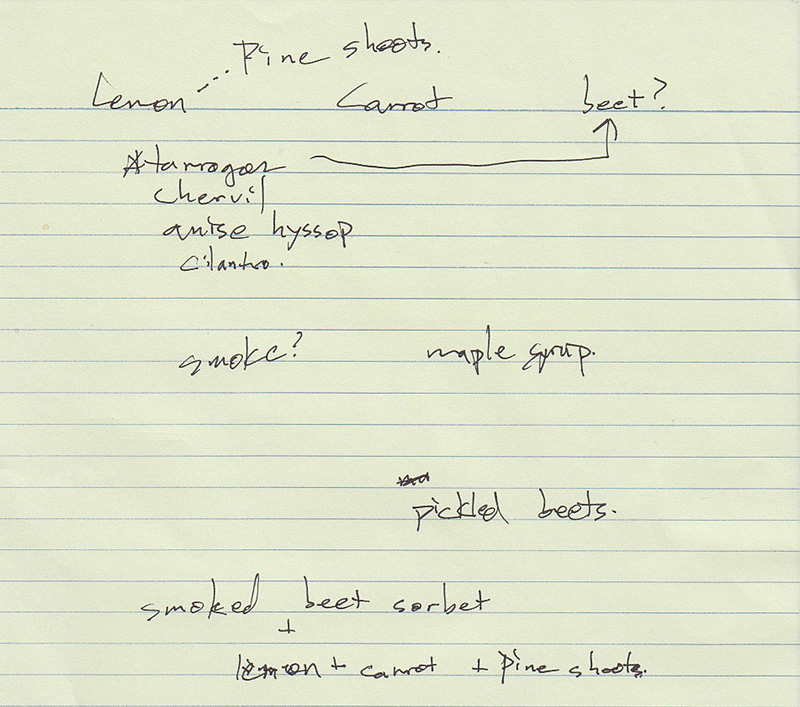 Pine shoots.
Lemon Carrot beet?
*tarragon
chervil
anise hyssop
cilantro.
smoke? maple syrup.
pickled beets.
smoked beet sorbet
+
lemon + carrot + Pine shoots.